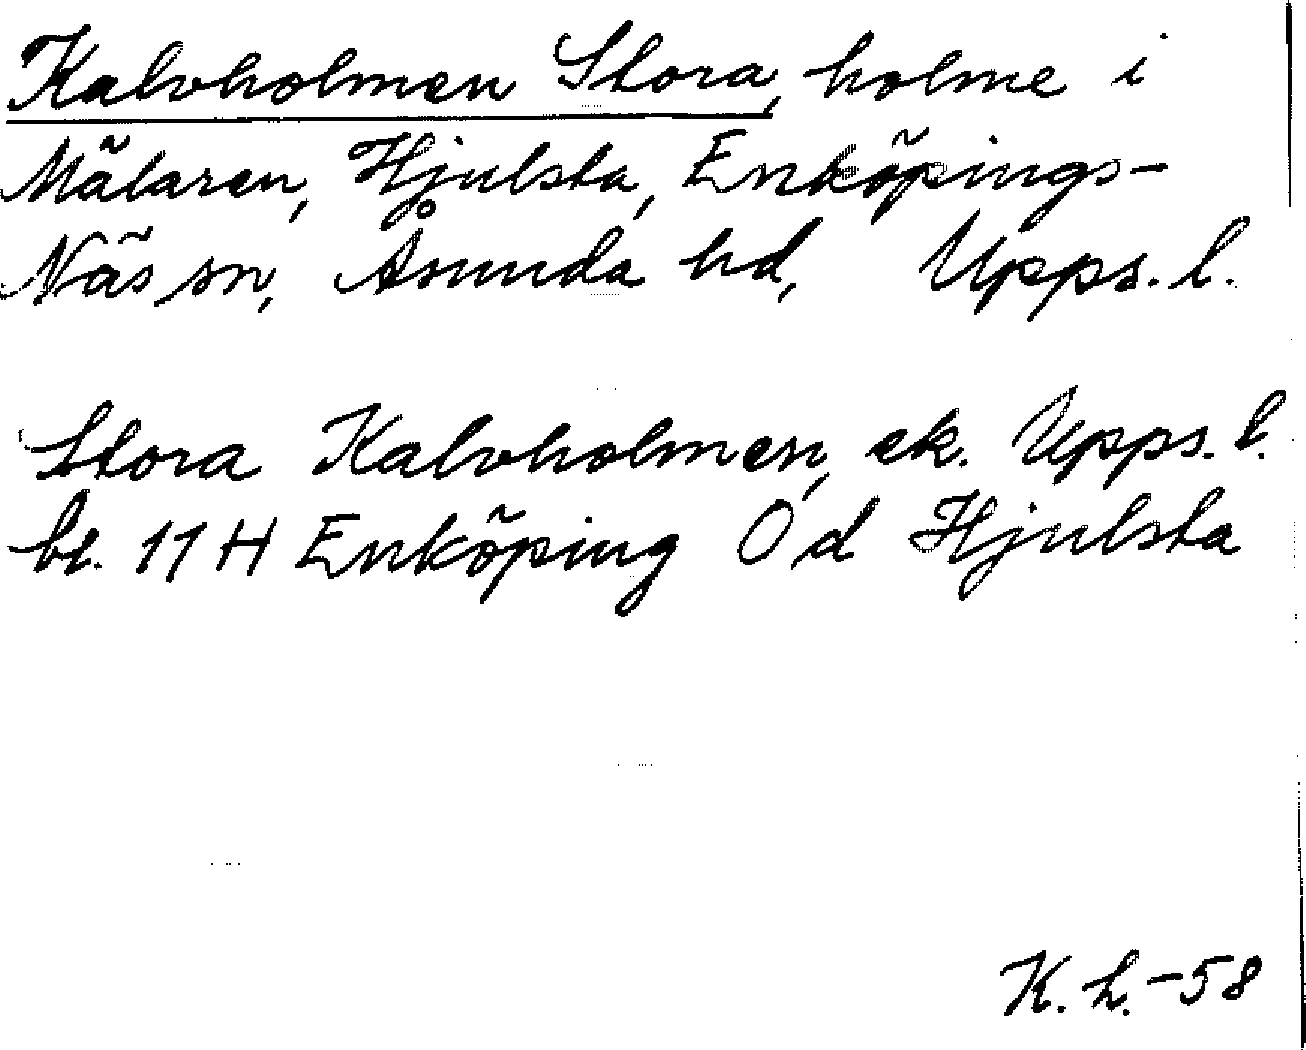 Kalvholmen Stora, holme i
Mälaren, Hjulsta, Enköpings-
Näs sn, Åsunda hd, Upps. l.
Stora Kalvholmen, ek. Upps. l.
bl. 11 H Enköping Ö, d Hjulsta
K. L. -58